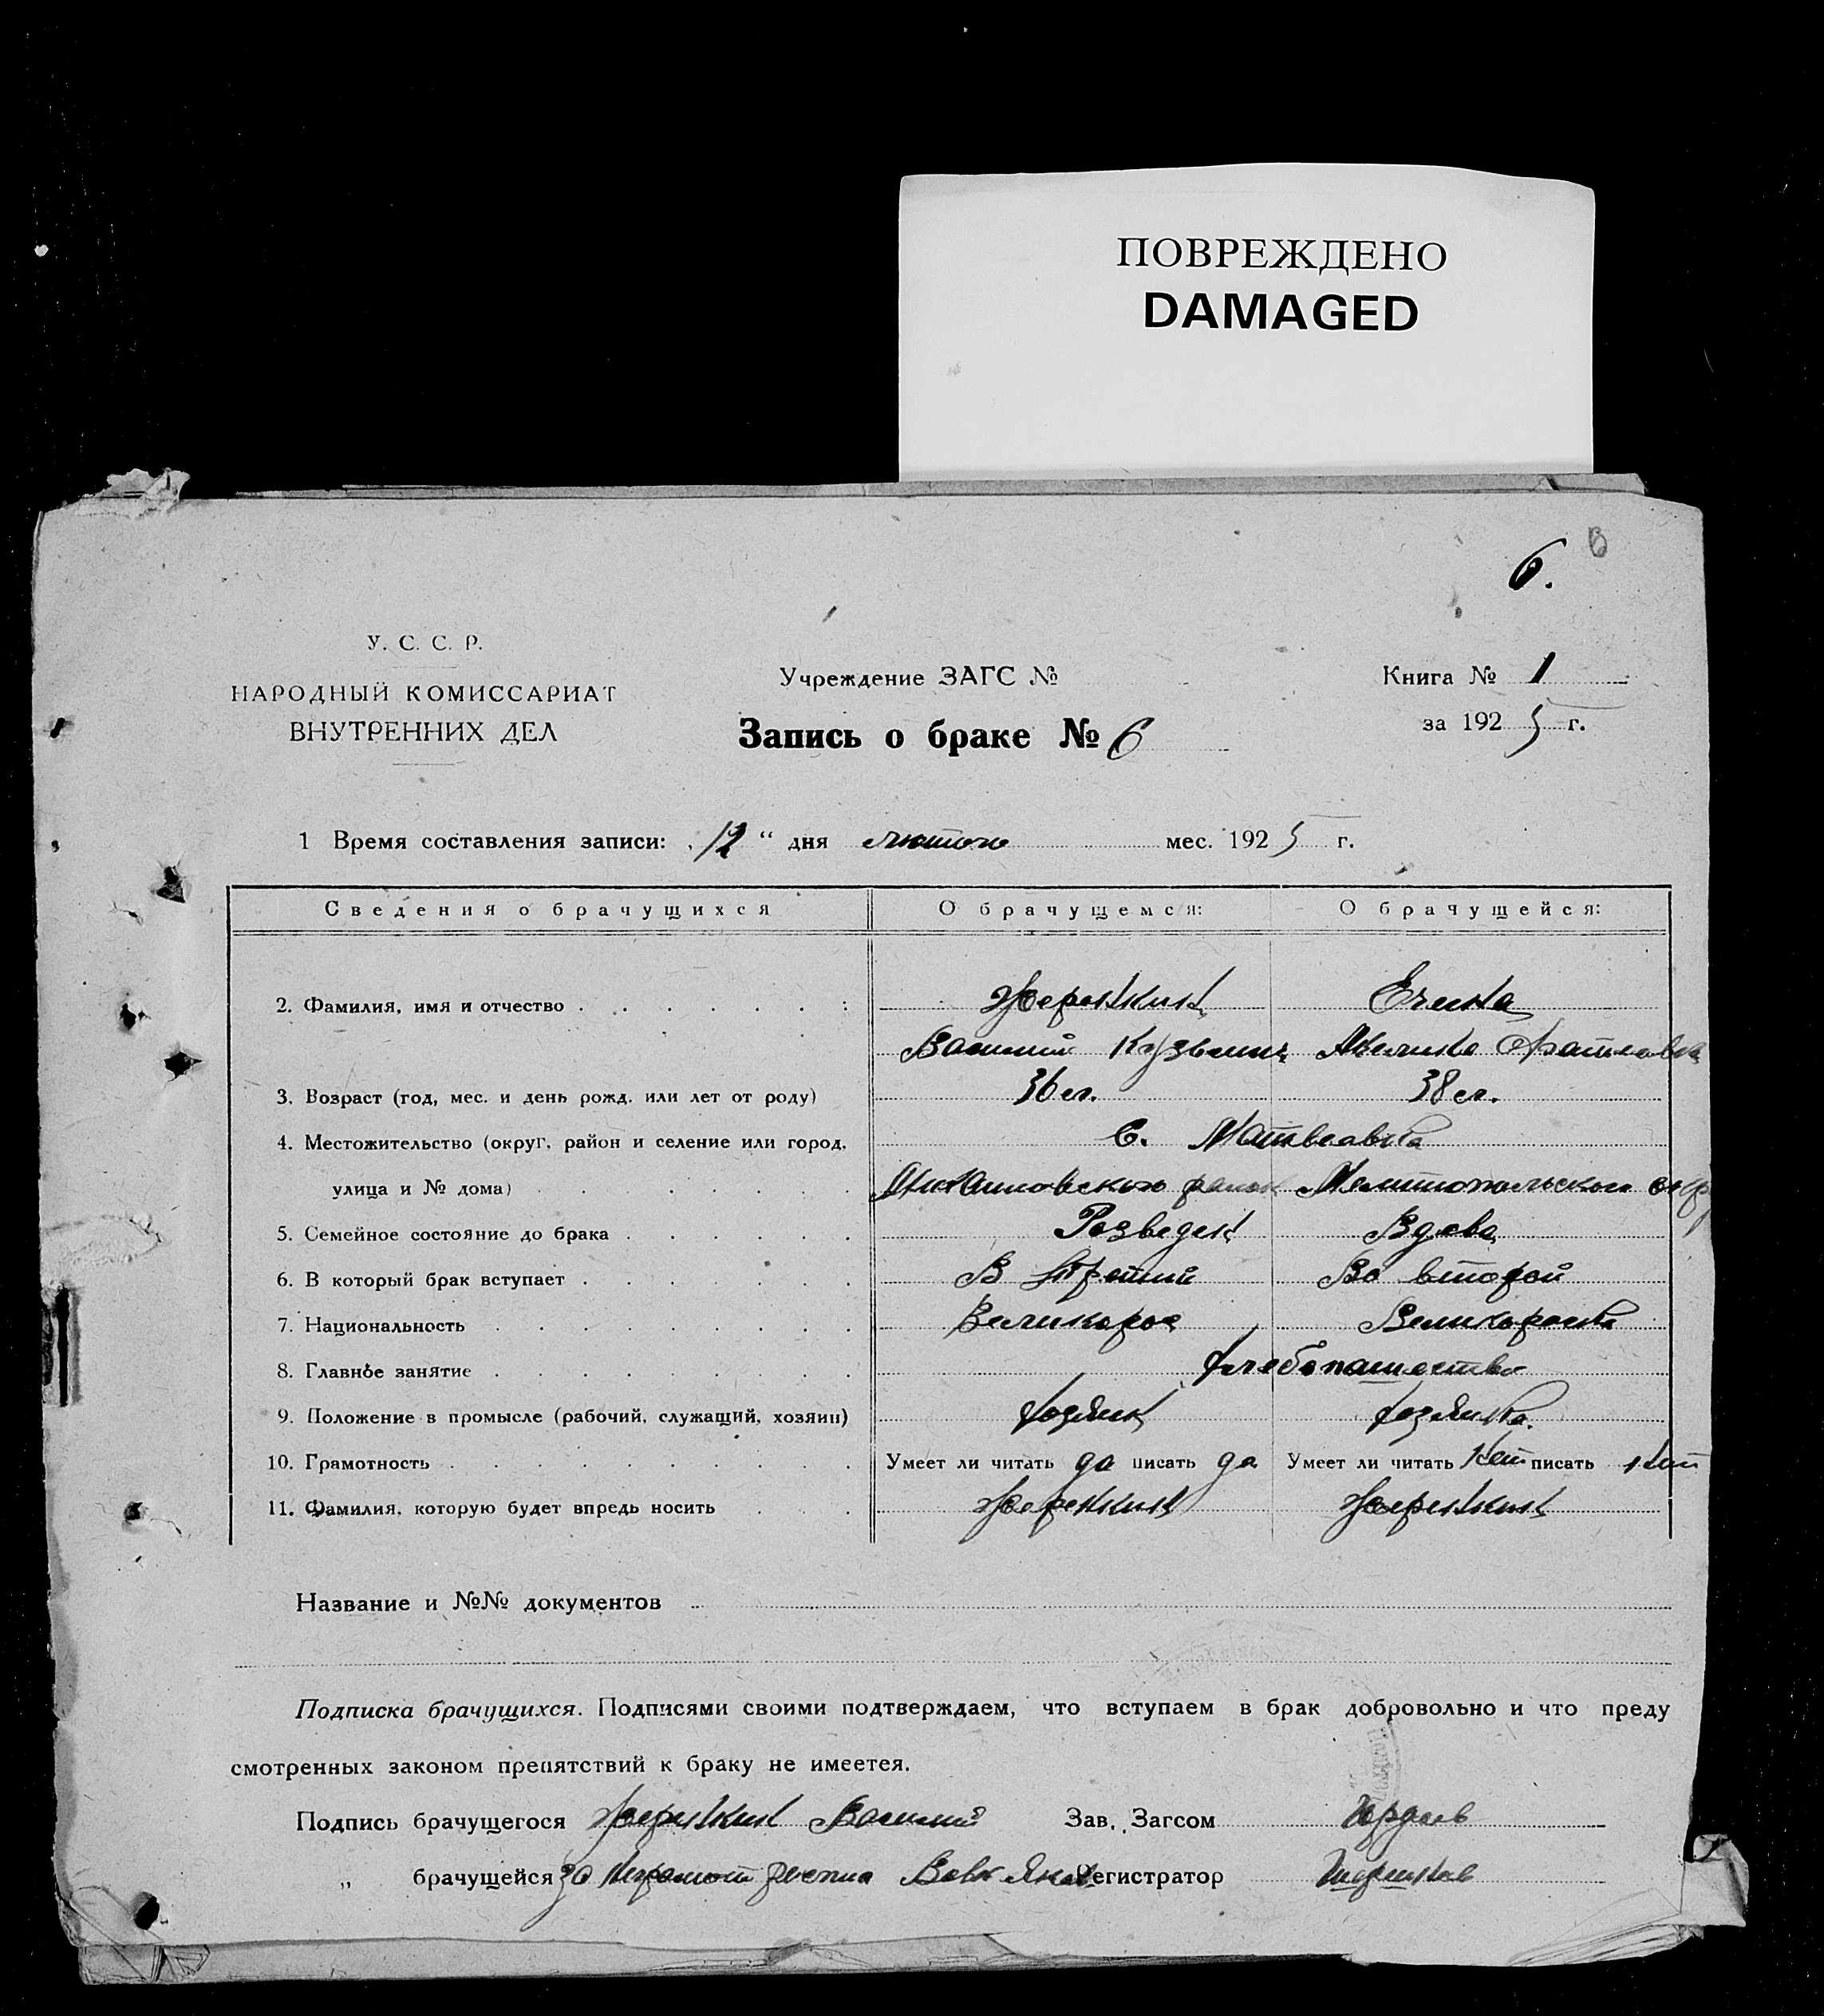 ПОВРЕЖДЕНО
DAMAGED
6.
У. С. С. Р.
НАРОДНЫЙ КОМИССАРИАТ
ВНУТРЕННИХ ДЕЛ
Учреждение ЗАГС №
Запись о браке № 6
Книга № 1
за 1925 г.
1 Время составления записи: 12 “ дня лютого мес. 1925 г.
Сведения о брачущихся О брачущемся: О брачущейся:
2. Фамилия, имя и отчество Жеренкин
Василий Кузьмич
3. Возраст (год, мес. и день рожд. или лет от роду) 36 л. 38 л.
4. Местожительство (округ, район и селение или город, С. Матвеавка
улица и № дома) район Мелитопольского окр
5. Семейное состояние до брака Розведен Вдова
6. В который брак вступает В третий Во второй
7. Национальность Великорос Великороска
8. Главное занятие Хлебопашество
9. Положение в промысле (рабочий, служащий, хозяин) Хозяин Хозяйка.
10. Грамотность Умеет ли читать да писать да Умеет ли читать нет писать нет
11. Фамилия, которую будет впредь носить Жеренкин Жеренкин
Название и №№ документов
Подписка брачущихся. Подписями своими подтверждаем, что вступаем в брак добровольно и что преду
смотренных законом препятствий к браку не имеется.
Подпись брачущегося Жеренкин Василий Зав. Загсом
„ брачущейся за Регистратор